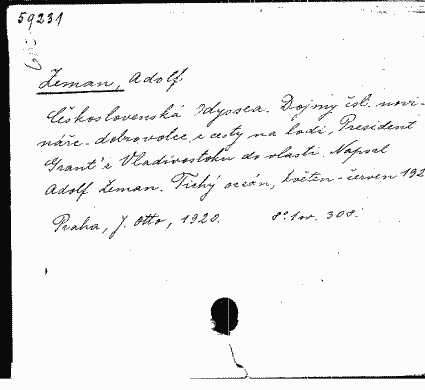 59231
Zeman, Adolf
Českoslovenká Odyssea. Dojmy čsl. novi-
náře-dobrovolce z cesty na lodi, President
Grant' z Vladivostoku do vlasti. Napsal
Adolf Zeman. Tichý oceán, květen-červen 192
Praha, J. Otto, 1920. 8° 1 sv. 308.